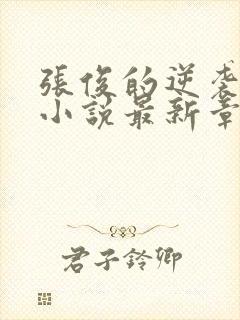 張俊的逆袭
小說最新章
君子鈴卿